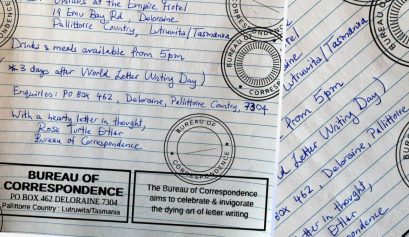 Upstairs at the Empire Hotel
19 Emu Bay Rd, Deloraine
Pallittorre Country, Lutruwita/Tasmania
Drinks & meals available from 5pm
(* 3 days after World Letter Writing Day)
Enquiries: PO BOX 462, Deloraine, Pallittorre Country, 7304
With a hearty letter in thought,
Rose Turtle Ertler
Bureau of Correspondence
BUREAU OF
CORRESPONDENCE
PO BOX 462 DELORAINE 7304
Pallitorre Country : Lutruwita/Tasmania
The Bureau of Correspondence
aims to celebrate & invigorate
the dying art of letter writing
BUREAU OF
CORRESPONDENCE
from 5pm
Letter Writing Day)
462, Deloraine, Pallittorre
letter in thought,
Ertler